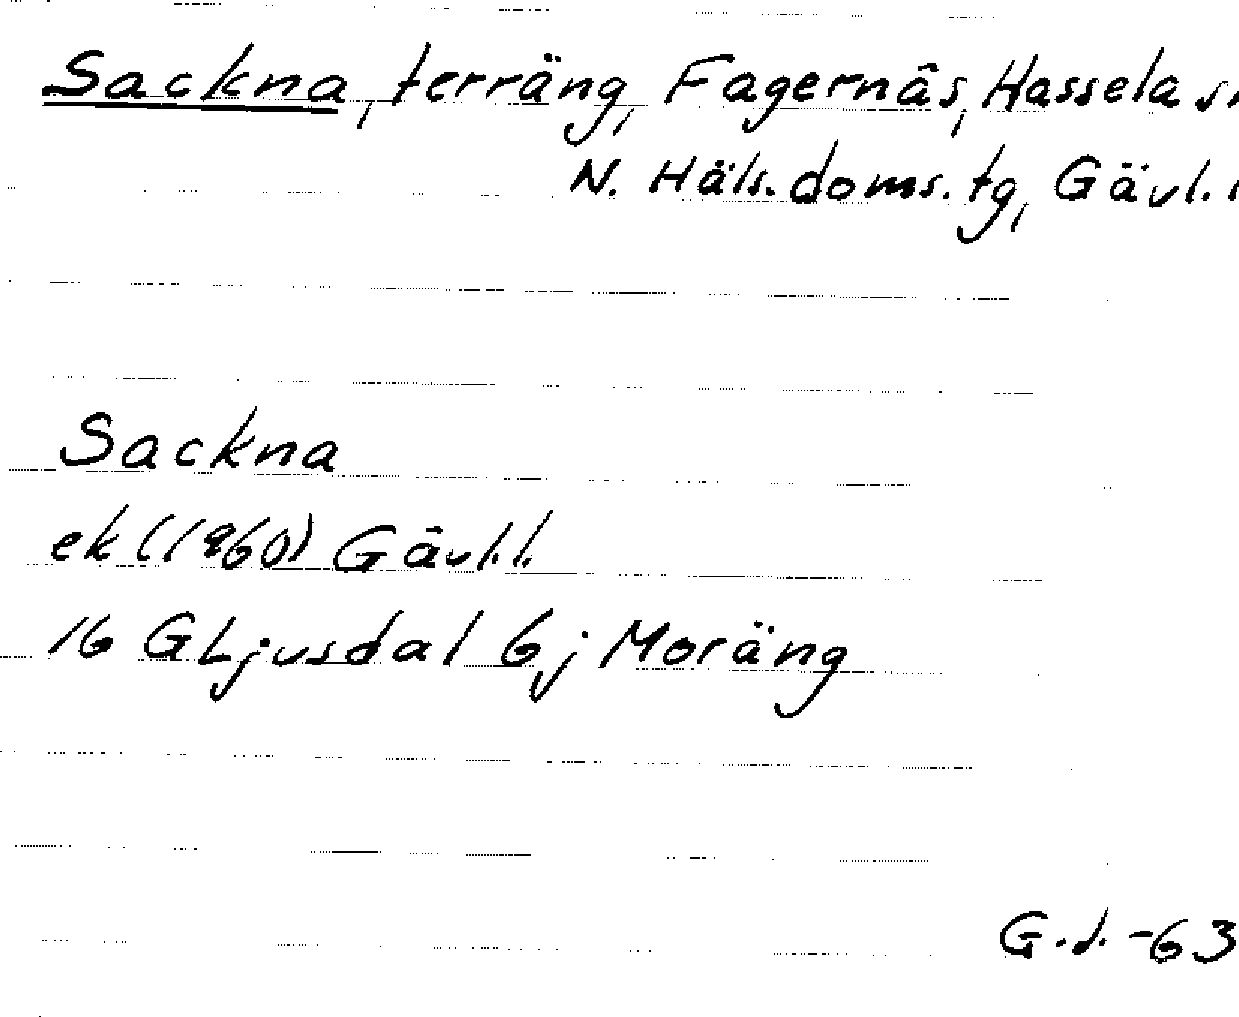 Sackna, terräng, Fagernäs, Hassela sn
N. Häls. doms. tg, Gävl. l
Sackna
ek (1960) Gävl.l.
16 G Ljusdal 6 j Moräng
G.d. -63